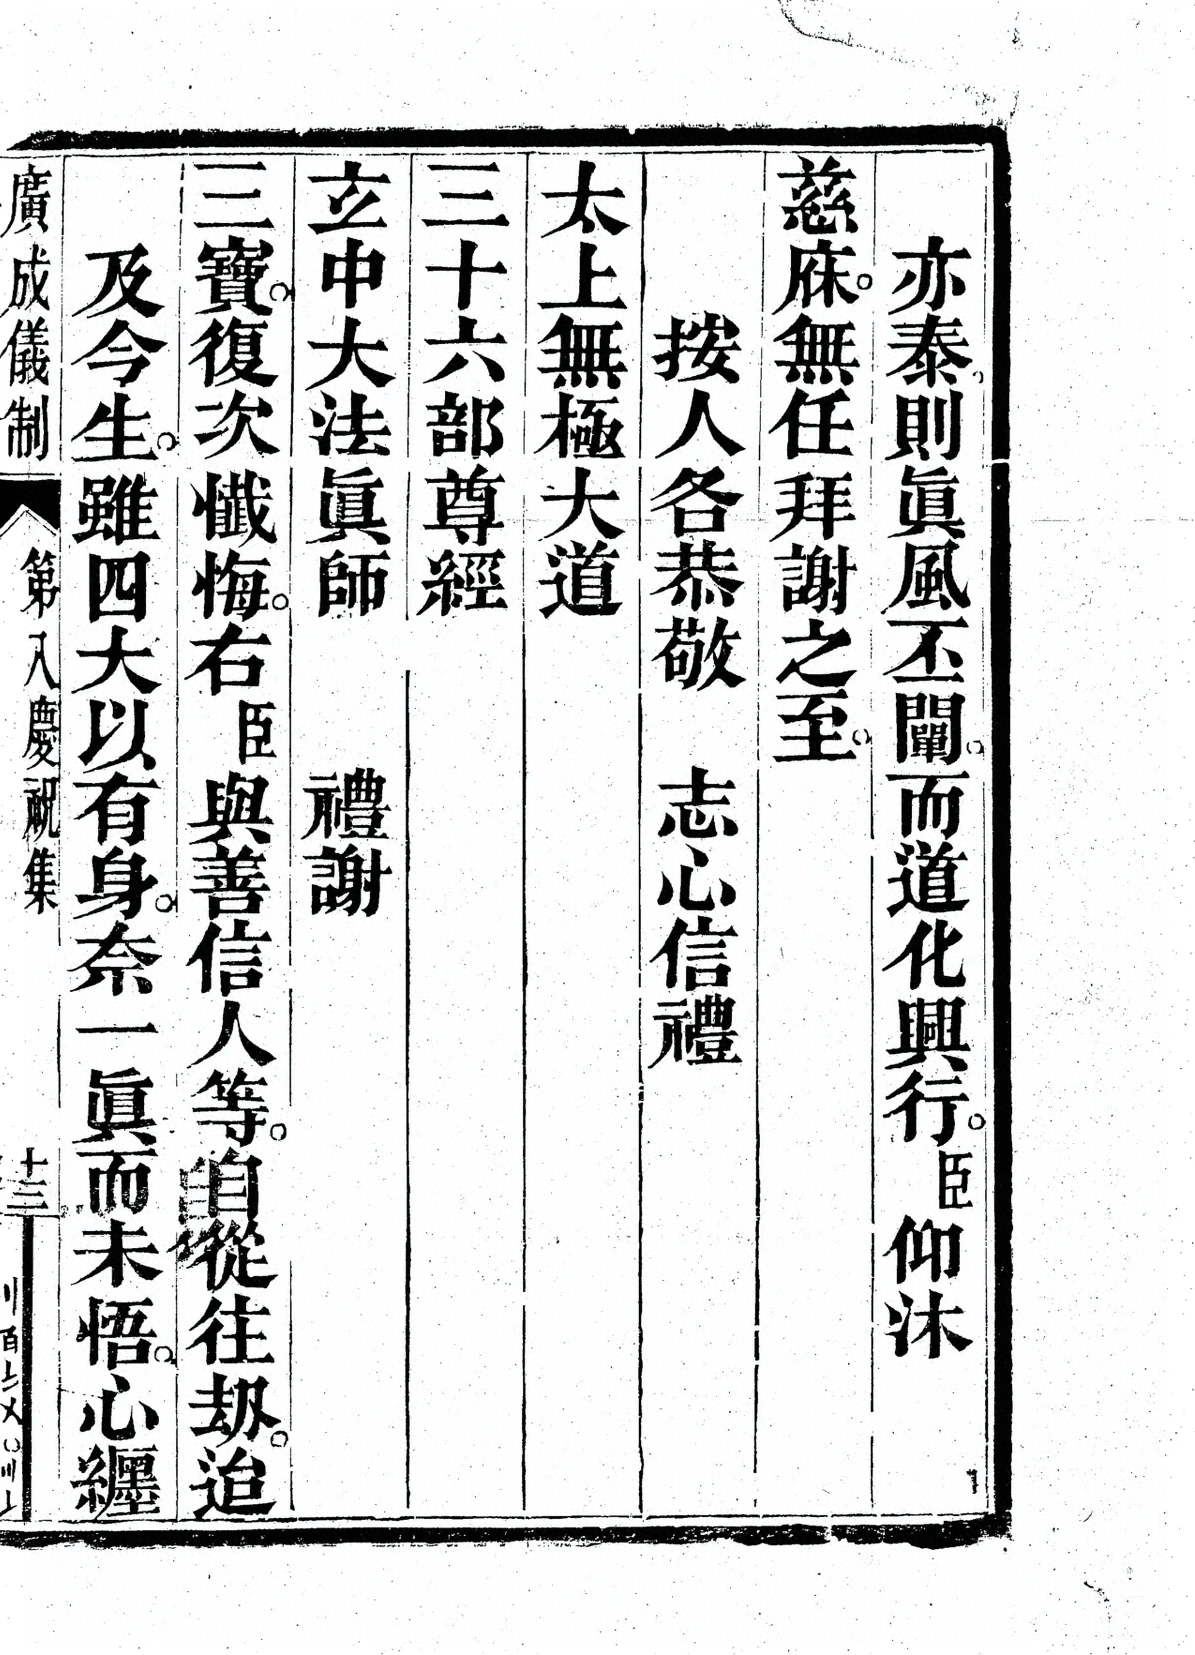 亦泰則眞風丕闡。而道化興行。臣仰沐
慈庥。無任拜謝之至。
按人各恭敬　志心信禮
太上無極大道
三十六部尊經
玄中大法眞師　　禮謝
三寶。復次懺悔。右臣與善信人等。自從往刼。迨
及今生。雖四大以有身。奈一眞而未悟。心纏
廣成儀制　第八慶祝集　十三